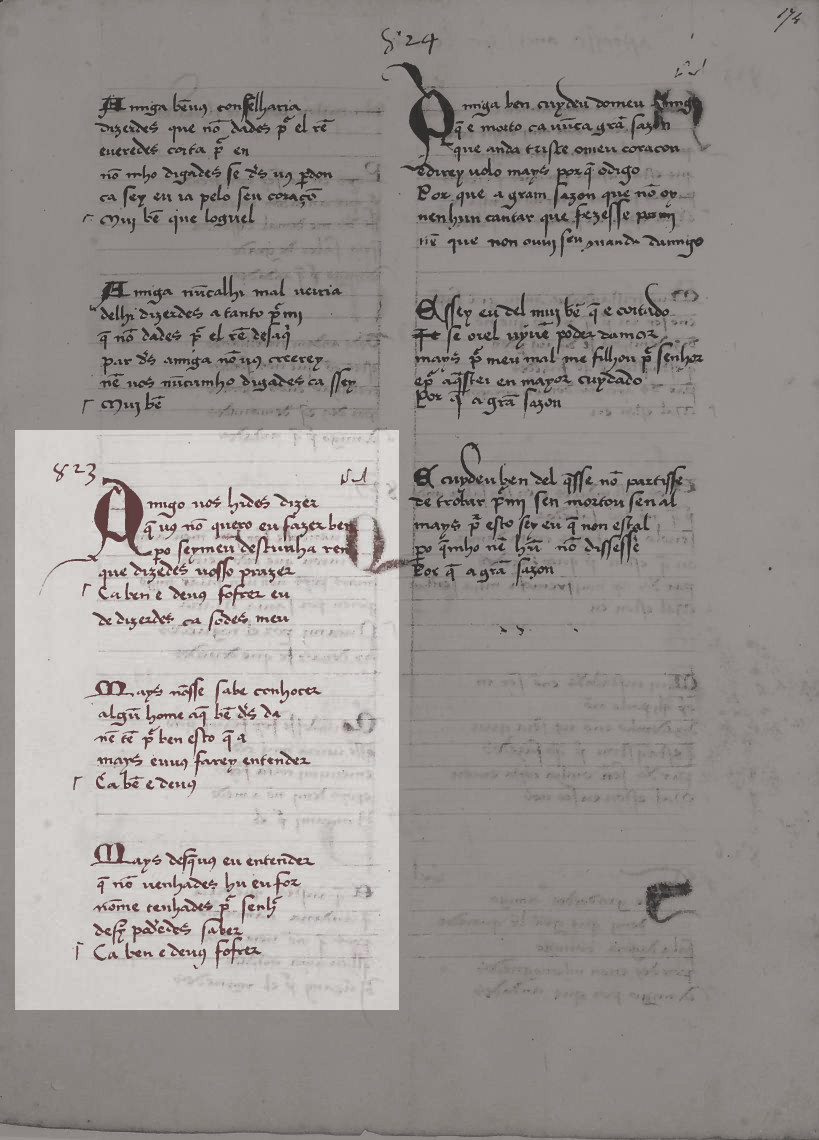 174
824
Amiga bẽ uꝯ conselharia
dizerdes que nõ dades pᷓ el rẽ
eueredes coita pᷓ en
nõ mho digades se ds̃ uꝯ ꝑdon
ca sey eu ia pelo seu coraçõ
Mui bẽ que loguel
Amiga nũcalhi mal uerria
delhi dizerdes a tanto pᷓ mi
q̃ nõ dades pᷓ el rẽ desaq̇
par ds̃ amiga nõ uꝯ creerey
nẽ uos nũcamho digades ca ssey
Mui bẽ
823
Amigo uos hides dizer
q̃ uꝯ nõ quero eu fazer ben
ꝑo seymeu destunha ren
que dizedes uosso prazer
Ca ben e deuꝯ sofrer eu
de dizerdes ca sodes meu
Mays nõsse sabe conhocer
algũ home aq̃ bẽ ds̃ da
nẽ tẽ pᷓ ben esto q̃ a
mays euuꝯ farey entender
Ca bẽ e deuꝯ
Mays desq̃uꝯ eu entender
q̃ nõ uenhades hu eu for
nõme tenhades pᷓ senhᷣ
desy podedes saber
Ca ben e deuꝯ sofrer
Amiga ben cuydeu domeu amigo
q̃ e morto ca nũca grã sazon
que anda triste omeu coraçon
edirey uolo mays porq̃ odigo
Por que a gram sazon que nõ oy
nenhun cantar que fezesse por mi
nẽ que non ouui seu mandadamigo
E ssey eu del mui bẽ q̃ e coitado
se oiel uyuẽ poder damor
mays pᷓ meu mal me filhou pᷓ senhor
epᷓ aq̃stei en mayor cuydado
Por q̃ a grã sazon
E cuydeu ben del q̃sse nõ partisse
de trobar pᷓ mi sen mortou sen al
mays pᷓ esto sey eu q̃ non estal
ꝑo q̃mho nẽ hũ nõ dissesse
Por q̃ a grã sazon